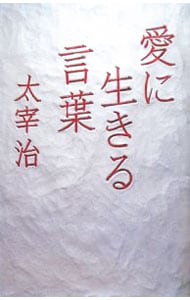 愛に
生きる
言葉
太宰治